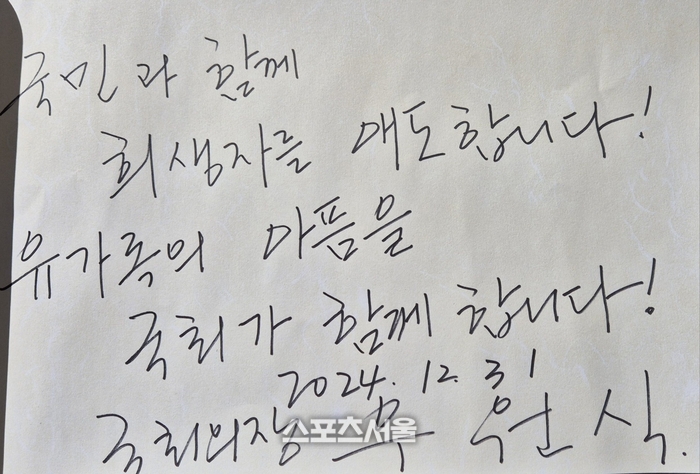 국민과 함께
희생자를 애도합니다!
유가족의 아픔을
국회가 함께 합니다!
2024. 12. 31
국회의장 우 원 식.
스포츠서울